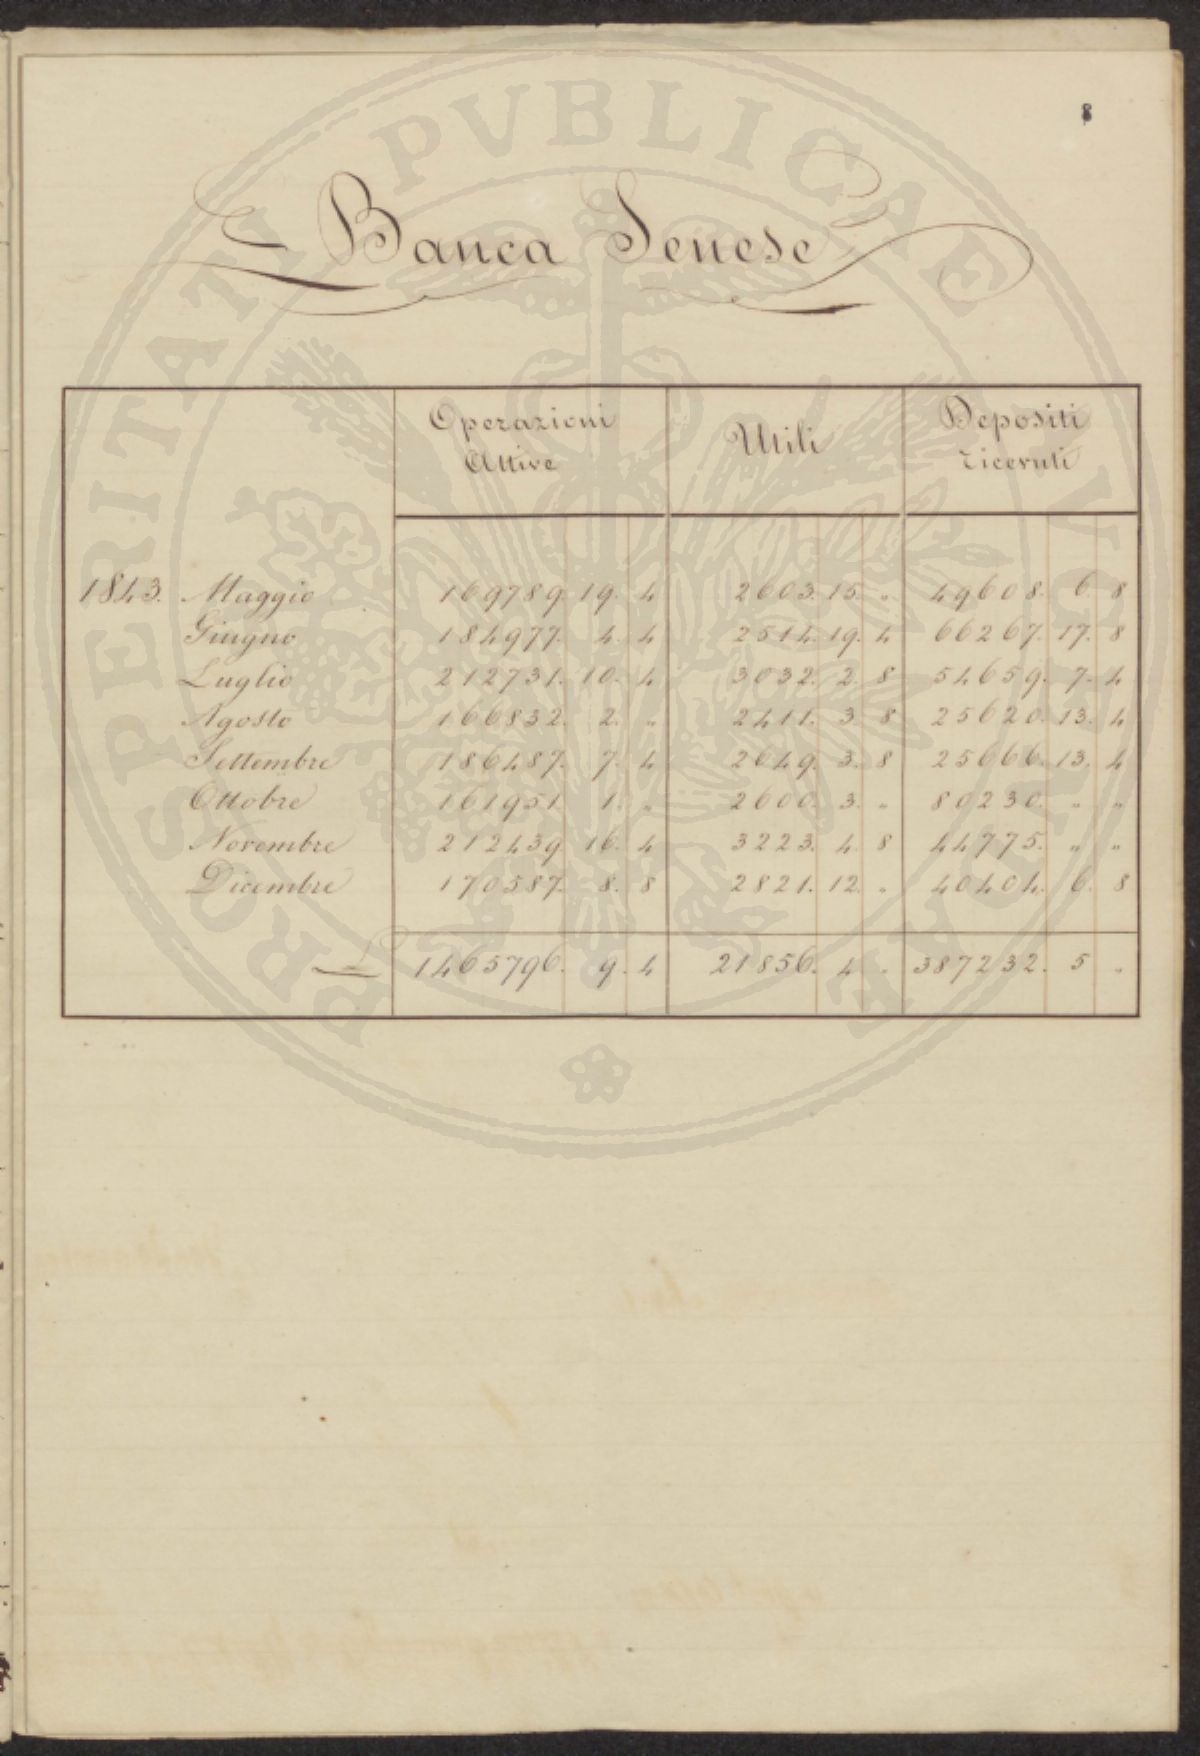 8
PROSPERITATI PVBLICAE AVGENDAE
Banca Senese
Operazioni Attive Utili Depositi ricevuti
1843. Maggio 169789. 19. 4 2603. 15. „ 49608. 6. 8
Giugno 184977. 4. 4 2514. 19. 4 66267. 17. 8
Luglio 212731. 10. 4 3032. 2. 8 54659. 7. 4
Agosto 166832. 2. „ 2411. 3. 8 25620. 13. 4
Settembre 186487. 7. 4 2649. 3. 8 25666. 13. 4
Ottobre 161951. 1. „ 2600. 3. „ 80230. „ „
Novembre 212439. 16. 4 3223. 4. 8 44775. „ „
Dicembre 170587. 8. 8 2821. 12. „ 40404. 6. 8
L 1465796. 9. 4 21856. 4 „ 387232. 5 „